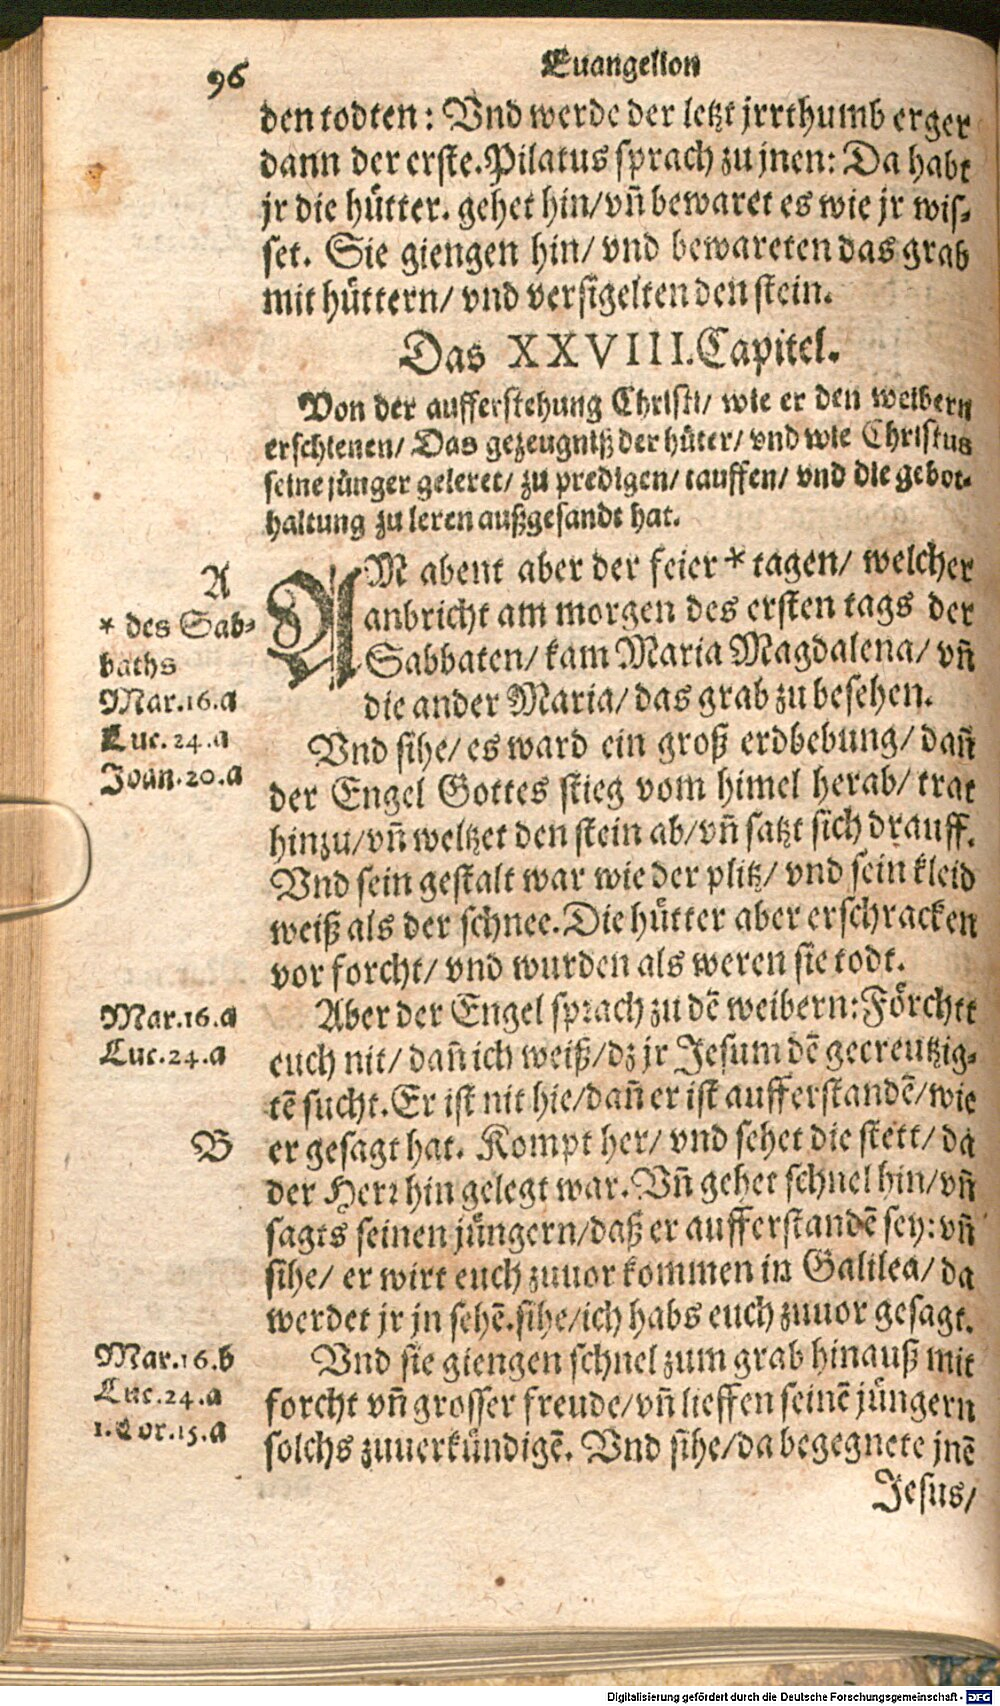 96
Euangelion
den todten: Vnd werde der letzt jrrthumb erger
dann der erste. Pilatus sprach zu jnen: Da habt
jr die hütter. gehet hin/ vñ bewaret es wie jr wis-
set. Sie giengen hin/ vnd bewareten das grab
mit hüttern/ vnd versigelten den stein.
Das XXVIII. Capitel.
Von der aufferstehung Christi/ wie er den weibern
erschienen/ Das gezeugniß der hüter/ vnd wie Christus
seine jünger geleret/ zu predigen/ tauffen/ vnd die gebot-
haltung zu leren außgesandt hat.
A
* des Sab-
baths
Mar.16.a
Luc.24.a
Joan.20.a
AM abent aber der feier * tagen/ welcher
anbricht am morgen des ersten tags der
Sabbaten/ kam Maria Magdalena/ vñ
die ander Maria/ das grab zu besehen.
Vnd sihe/ es ward ein groß erdbebung/ dañ
der Engel Gottes stieg vom himel herab/ trat
hinzu/ vñ weltzet den stein ab/ vñ satzt sich drauff.
Vnd sein gestalt war wie der plitz/ vnd sein kleid
weiß als der schnee. Die hütter aber erschracken
vor forcht/ vnd wurden als weren sie todt.
Mar.16.a
Luc.24.a
Aber der Engel sprach zu dẽ weibern: Förchtt
euch nit/ dañ ich weiß/ dz jr Jesum dẽ gecreutzig-
tẽ sucht. Er ist nit hie/ dañ er ist aufferstandẽ/ wie
B
er gesagt hat. Kompt her/ vnd sehet die stett/ da
der Herr hin gelegt war. Vñ gehet schnel hin/ vñ
sagts seinen jüngern/ daß er aufferstandẽ sey: vñ
sihe/ er wirt euch zuuor kommen in Galilea/ da
werdet jr jn sehẽ. sihe/ ich habs euch zuuor gesagt.
Mar.16.b
Luc.24.a
1.Cor.15.a
Vnd sie giengen schnel zum grab hinauß mit
forcht vñ grosser freude/ vñ lieffen seinẽ jüngern
solchs zuuerkündigẽ. Vnd sihe/ da begegnete jnẽ
Jesus/
Digitalisierung gefördert durch die Deutsche Forschungsgemeinschaft - DFG